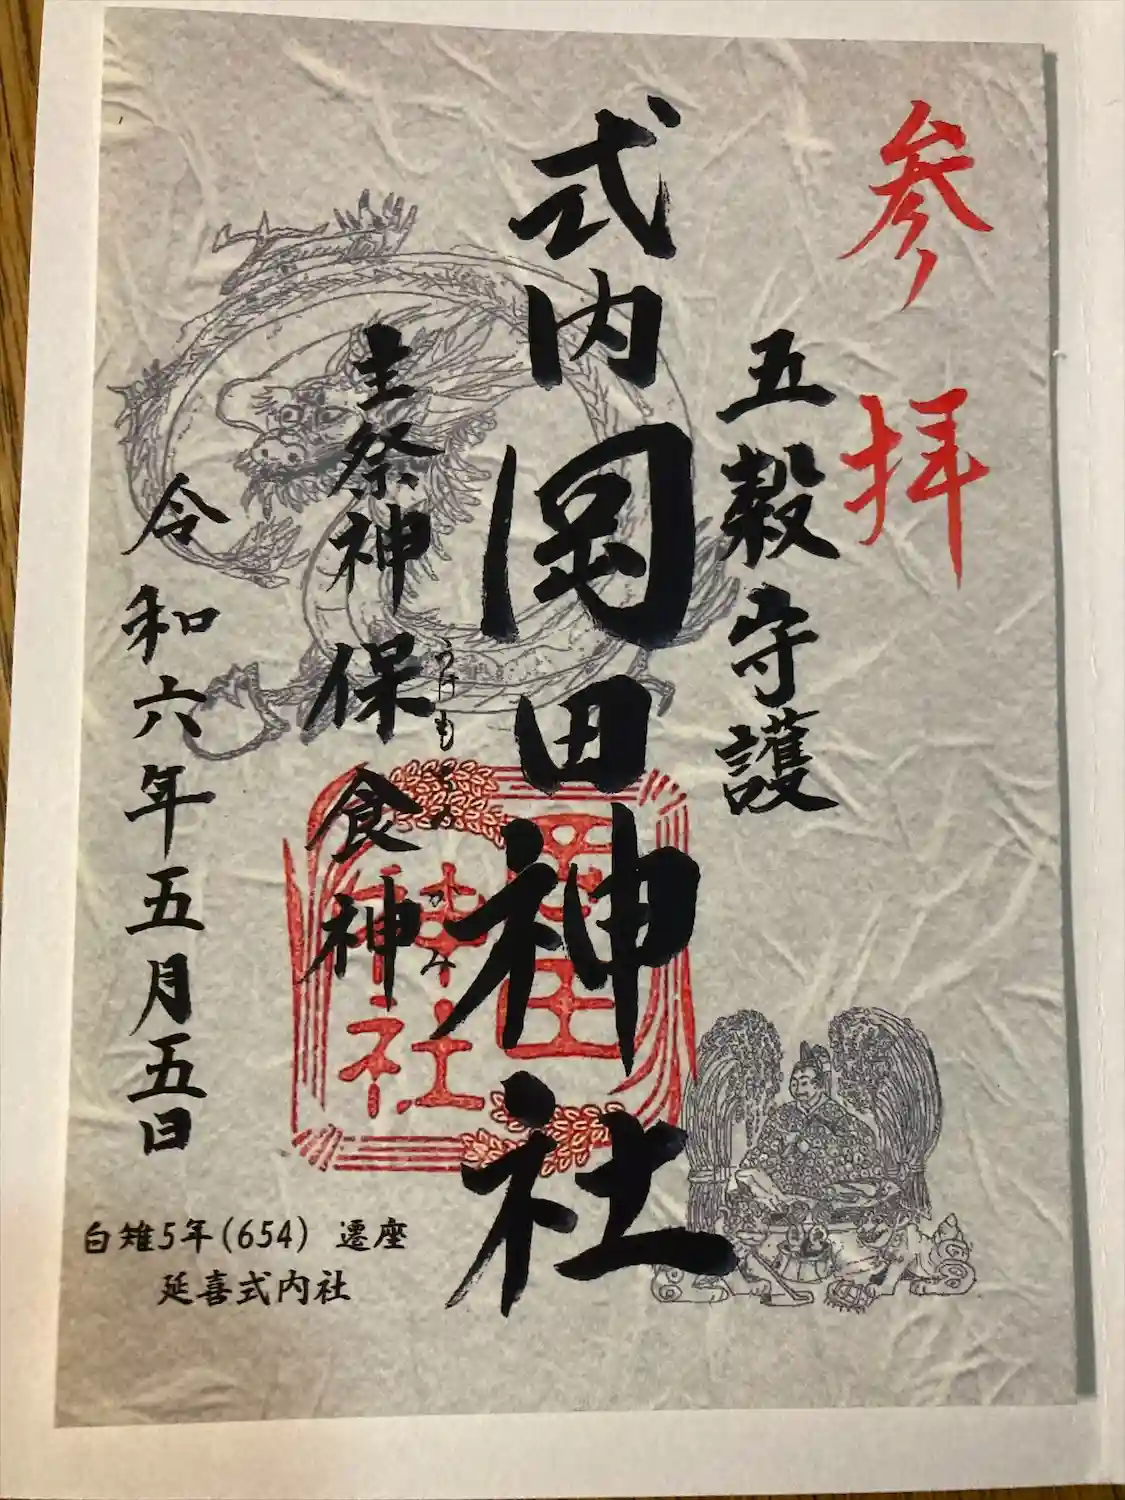 参拝
五穀守護
式内岡田神社
主祭神保食神
うけもちのかみ
令和六年五月五日
白雉5年(654) 遷座
延喜式内社